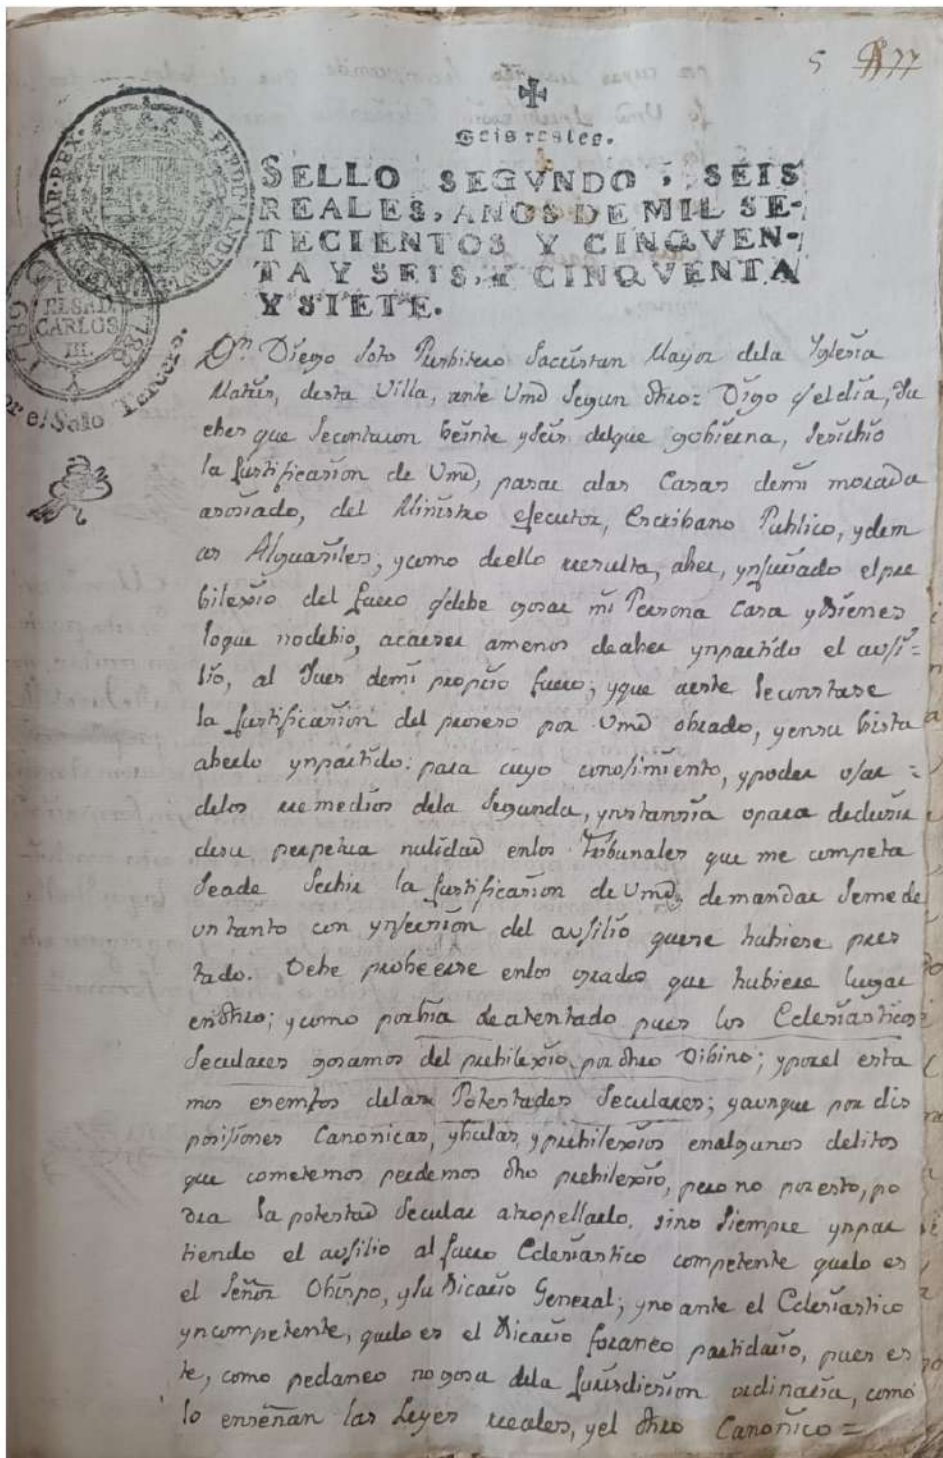 5 77
Seis reales.
SELLO SEGVNDO, SEIS
REALES, AÑOS DE MIL SE-
TECIENTOS Y CINQVEN-
TA Y SEIS, Y CINQVENTA
Y SIETE.
CARLOS
III.
Dn. Diego Soto Presbitero Sacristan Mayor dela Yglesia
Matris, desta Villa, ante Vmd Segun dro= Digo q el dia, Ju
ebes que Secontaron beinte yseis delque gobierna, Sesirbio
la Justificasion de Vmd, pasar alas Casas demi morada
asosiado, del Ministro ejecutor, Escribano Publico, ydem
as Alguasiles; ycomo deello resulta, aber, ynjuriado elpre
bilexio del fuero q debe gosar mi Persona Casa ybienes
loque nodebio, acaeser amenos deaber ynpartido el ausi=
lio, al Jues demi propio fuero; yque aeste Seconstase
la Justificasion del proseso por Vmd obrado, yensu bista
aberlo ynpartido: para cuyo conosimiento, ypoder usar =
delos remedios dela Segunda, ynstansia opara dedusir
desu perpetua nulidad enlos Tribunales que me competa
Seade Serbir la Justificasion de Vmd, demandar Semede
untanto con ynsersion del ausilio quese hubiese pres
tado. Debe probeerse enlos grados que hubiere lugar
endro; ycomo porbia deatentado pues los Eclesiasticos
Seculares gosamos del prebilexio por dro Dibino; yporel esta
mos esemptos delas Potestades Seculares; yaunque por dis
posisiones Canonicas, ybulas, yprebilexios enalgunos delitos
que cometemos perdemos dho prebilexio, pero no poresto, po
dra la potestad Secular atropellarlo, sino Siempre ynpar
tiendo el ausilio al fuero Eclesiastico competente quelo es
el Señor Obispo, ysu Bicario General; yno ante el Eclesiastico
yncompetente, quelo es el Bicario foraneo partidario, pues es
te, como pedaneo no gosa dela Jurisdicsion ordinaria, como
lo enseñan las Leyes reales, yel dro Canonico=